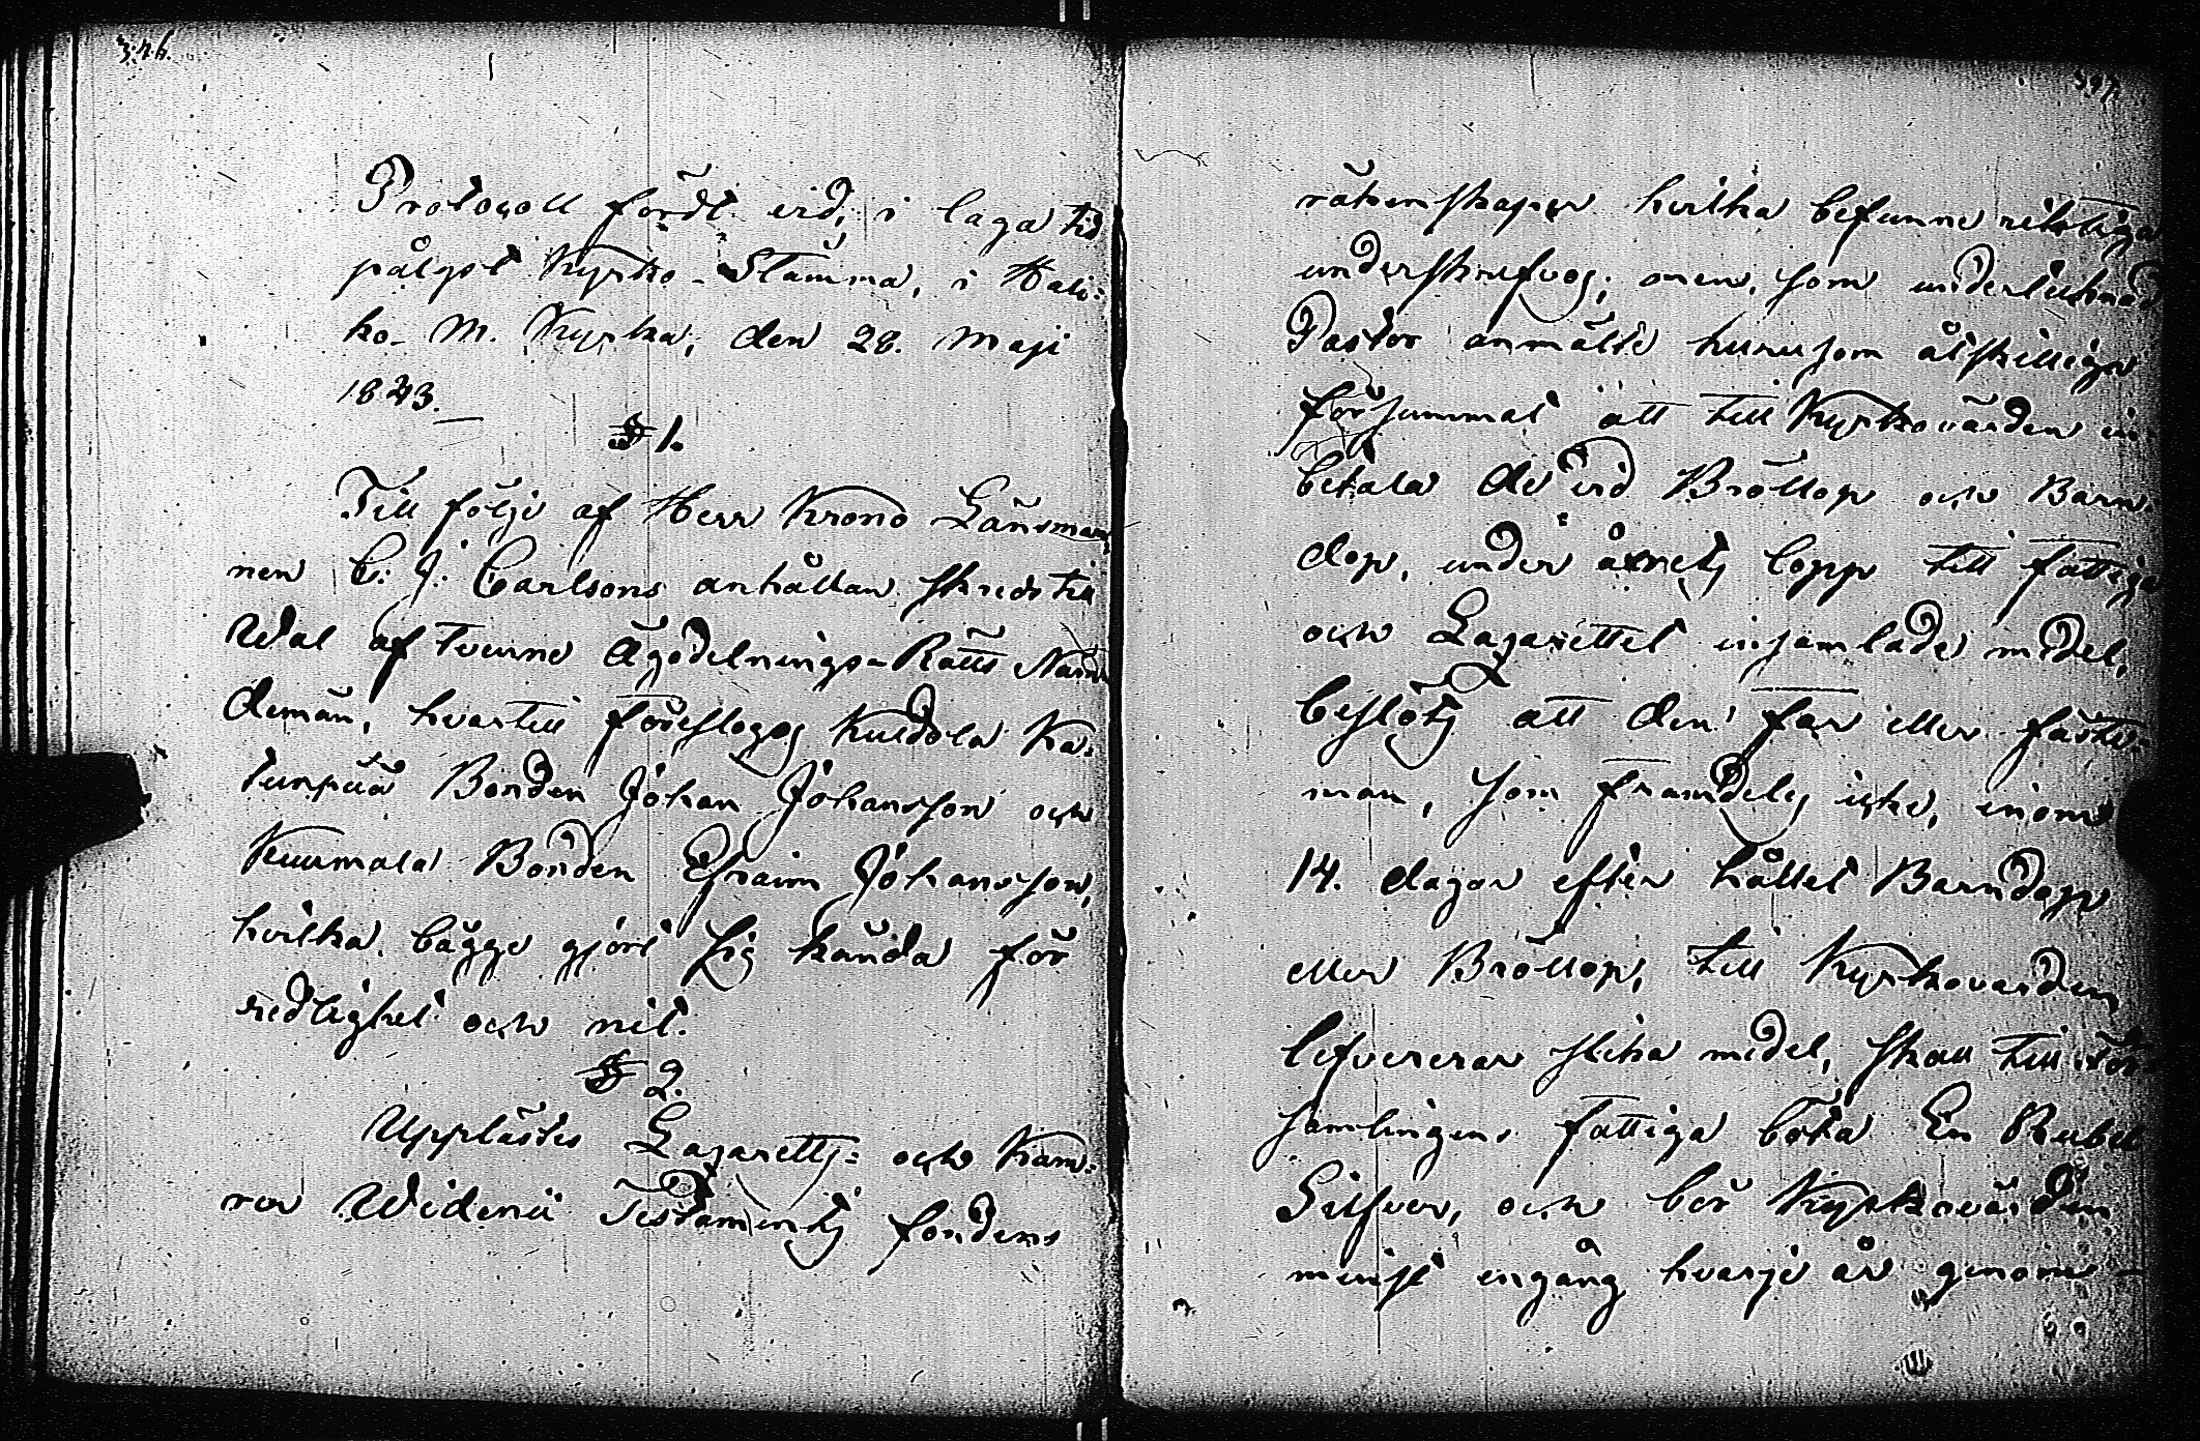 346.
Protocoll fördt vid, i laga tid
pålyst Kyrko-Stämma, i Hali-
ko M. Kyrka, den 28. Maji
1843.
§ 1.
Till följe af Herr Krono Länsman
nen C. J. Carlsons anhållan skreds till
Wal af tvenne Ägodelnings-Rätts Näm-
demän, hvartill föreslogos Kuldola Ka-
tunpää Bonden Johan Johansson och
Kuurmala Bonden Efraim Johansson,
hvilka bägge gjort sig kända för
redlighet och nit.
§ 2.
Upplästes Lazaretts- och Kam-
rer Widenii Testaments fondens
347.
räkenskaper hvilka befunne riktiga
underskrefvos; men, som undertecknad
Pastor anmälte hurusom åtskillige
försummat att till Kyrkovärden in-
betala de vid Bröllop och Barn-
dop, under årets lopp till fattiga
och Lazarettet insamlade medel,
beslöts att den far eller fäste-
man, som framdeles icke, inom
14. dagar efter hållet Barndop
eller Bröllop, till Kyrkovärden
lefvererar slika medel, skall till För-
samlingens fattiga böta En Rubel
Silfver, och bör Kyrkovärden
minst engång hvarje år genom